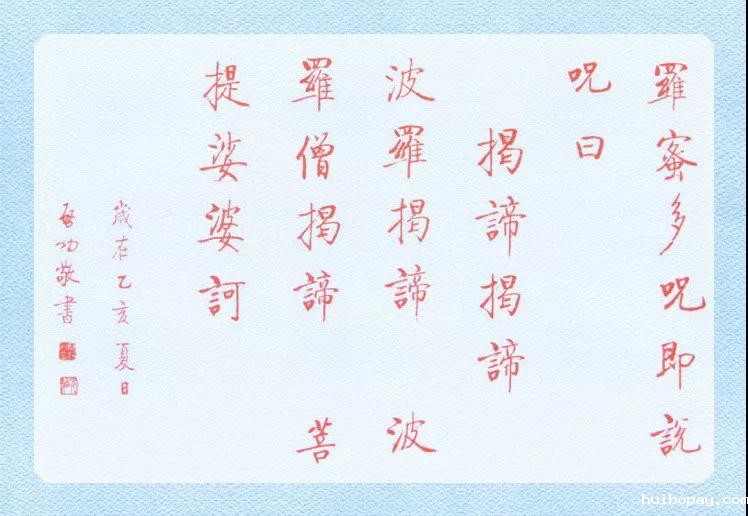 羅蜜多呪即説
呪曰
揭諦揭諦
波羅揭諦 波
羅僧揭諦 菩
提娑婆訶
歲在乙亥夏日
啓功敬書
huibopay.com